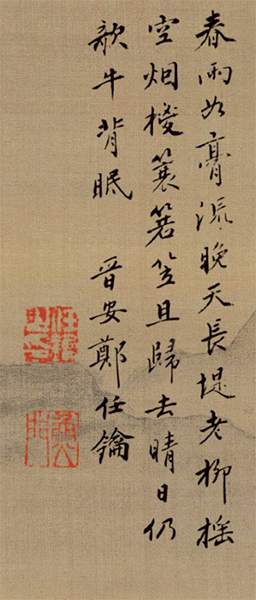 春雨如膏晚天長堤老柳搖
空烟椶蓑箬笠且歸去晴日仍
欹牛背眠 晉安鄭任鑰